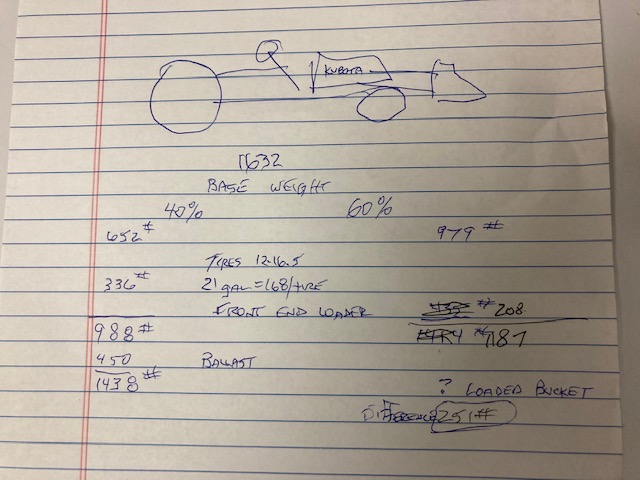 KUBOTA
1632
BASE WEIGHT
40% 60%
652# 979#
TIRES 12-16.5
336# 21 gal = 168/TIRE
FRONT END LOADER 435 # 208
988# #1187
450 BALLAST
1438#
? LOADED BUCKET
DIFFERENCE 251#